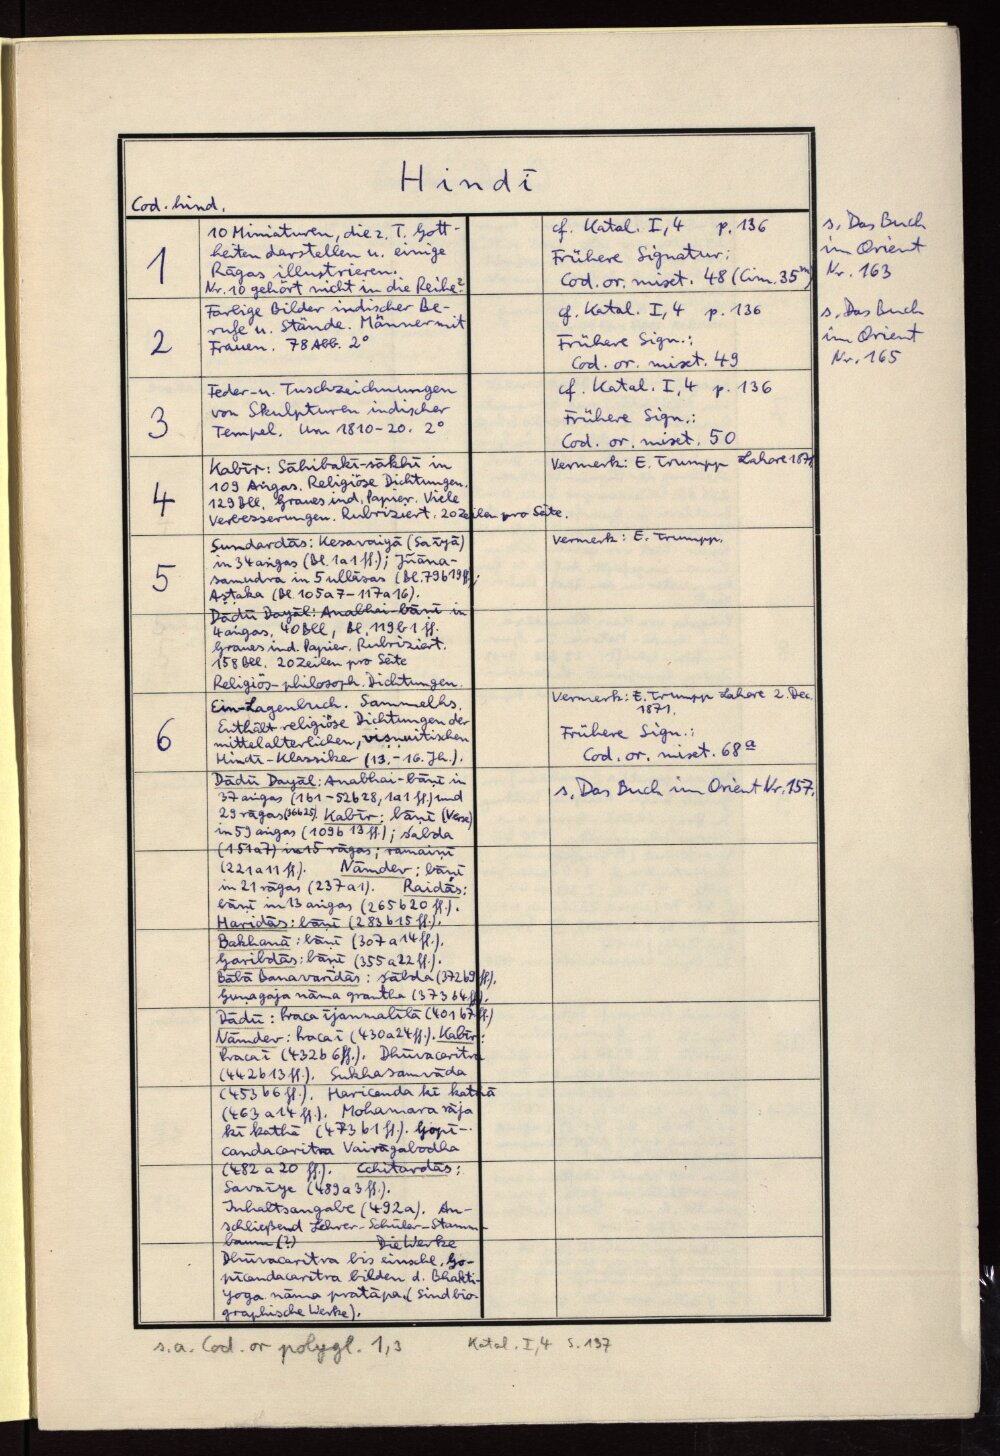 Hindī
Cod. hind.
1
10 Miniaturen, die z. T. Gott-
heiten darstellen u. einige
Rāgas illustrieren.
Nr. 10 gehört nicht in die Reihe?
cf. Katal. I,4 p. 136
Frühere Signatur:
Cod. or. mixt. 48 (Cim. 35m)
s. Das Buch
im Orient
Nr. 163
2
Farbige Bilder indischer Be-
rufe u. Stände. Männer mit
Frauen. 78 Abb. 2°
cf. Katal. I,4 p. 136
Frühere Sign.:
Cod. or. mixt. 49
s. Das Buch
im Orient
Nr. 165
3
Feder- u. Tuschzeichnungen
von Skulpturen indischer
Tempel. Um 1810-20. 2°
cf. Katal. I,4 p. 136
Frühere Sign.:
Cod. or. mixt. 50
4
Kabīr: Sāhibakī-sākhī in
109 Aṅgas. Religiöse Dichtungen.
129 Bll. Graues ind. Papier. Viele
Verbesserungen. Rubriziert. 20 Zeilen pro Seite.
Vermerk: E. Trumpp Lahore 1871
5
Sundardās: Kesavaiyā (Saīyā)
in 34 aṅgas (Bl. 1a1 ff.); Jñāna-
samudra in 5 ullāsas (Bl. 79b19ff.);
Aṣṭaka (Bl 105a7-117a16).
Dādū Dayāl: Anabhai-bāṇī in
4 aṅgas, 40 Bll, Bl. 119b1 ff.
Graues ind. Papier. Rubriziert.
158 Bll. 20 Zeilen pro Seite
Religiös-philosoph. Dichtungen.
Vermerk: E. Trumpp.
6
Ein-Lagenbuch. Sammelhs.
Enthält religiöse Dichtungen der
mittelalterlichen, viṣṇuitischen
Hindī-Klassiker (13.-16. Jh.).
Vermerk: E. Trumpp Lahore 2. Dec.
1871.
Frühere Sign.:
Cod. or. mixt. 68a
Dādū Dayāl: Anabhai-bāṇī in
37 aṅgas (1b1-52b28, 1a1 ff.) und
29 rāgas (36b25). Kabīr: bāṇī (Verse)
in 59 aṅgas (109b 13 ff.); sabda
(151a7) in 15 rāgas; ramaiṇī
(221a11 ff.). Nāmdev: bāṇī
in 21 rāgas (237a1). Raidās:
bāṇī in 13 aṅgas (265b20 ff.).
Haridās: bāṇī (283b15 ff.).
s. Das Buch im Orient Nr. 157.
Bakhanā: bāṇī (307a14 ff.).
Garībdās: bāṇī (355a22 ff.).
Bābā Banavarīdās: sabda (372b9 ff.).
Guṇagaja nāma grantha (373b4 ff.).
Dādū: Paraca ījanmalīlā (401b7 ff.)
Nāmdev: Paracaī (430a24 ff.). Kabīr:
Paracaī (432b6 ff.). Dhūvacaritra
(442b13 ff.). Sukhasamvāda
(453b6 ff.). Haricanda kī kathā
(463a14 ff.). Mohamara rāja
kī kathā (473b1 ff.). Gopī-
candacaritra Vairāgabodha
(482a20 ff.). Cchītardās:
Savaīye (489a3 ff.).
Inhaltsangabe (492a). An-
schließend Lehrer-Schüler-Stamm-
baum (?) Die Werke
Dhūvacaritra bis einschl. Go-
pīcandacaritra bilden d. Bhakti-
yoga nāma pratāpa. (Sind bio-
graphische Werke).
s. a. Cod. or polygl. 1,3
Katal. I,4 S. 137